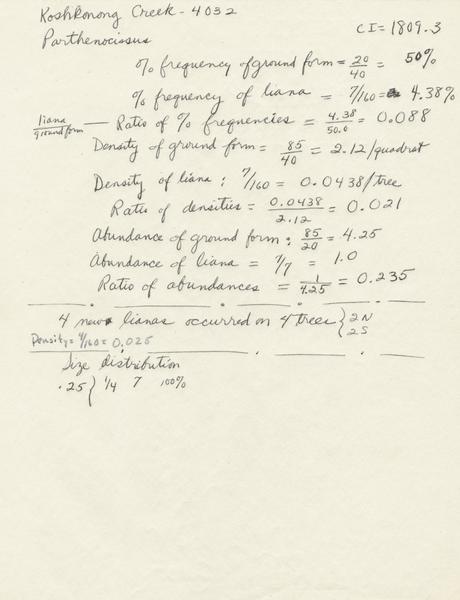 Koshkonong Creek - 4032
CI = 1809.3
Parthenocissus
% frequency of ground form = 20/40 = 50%
% frequency of liana = 7/160 = 4.38%
liana/ground form — Ratio of % frequencies = 4.38/50.0 = 0.088
Density of ground form = 85/40 = 2.12/quadrat
Density of liana: 7/160 = 0.0438/tree
Ratio of densities = 0.0438/2.12 = 0.021
Abundance of ground form: 85/20 = 4.25
Abundance of liana = 7/7 = 1.0
Ratio of abundances = 1/4.25 = 0.235
4 new lianas occurred on 4 trees { 2N
2S
Density = 4/160 = 0.025
Size distribution
.25 { 1/4 7 100%